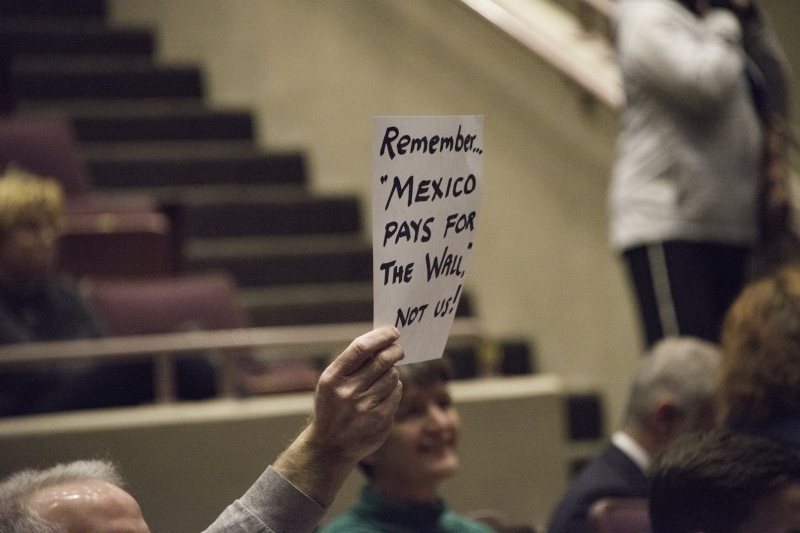 Remember...
"MEXICO
PAYS FOR
THE WALL,"
NOT US!